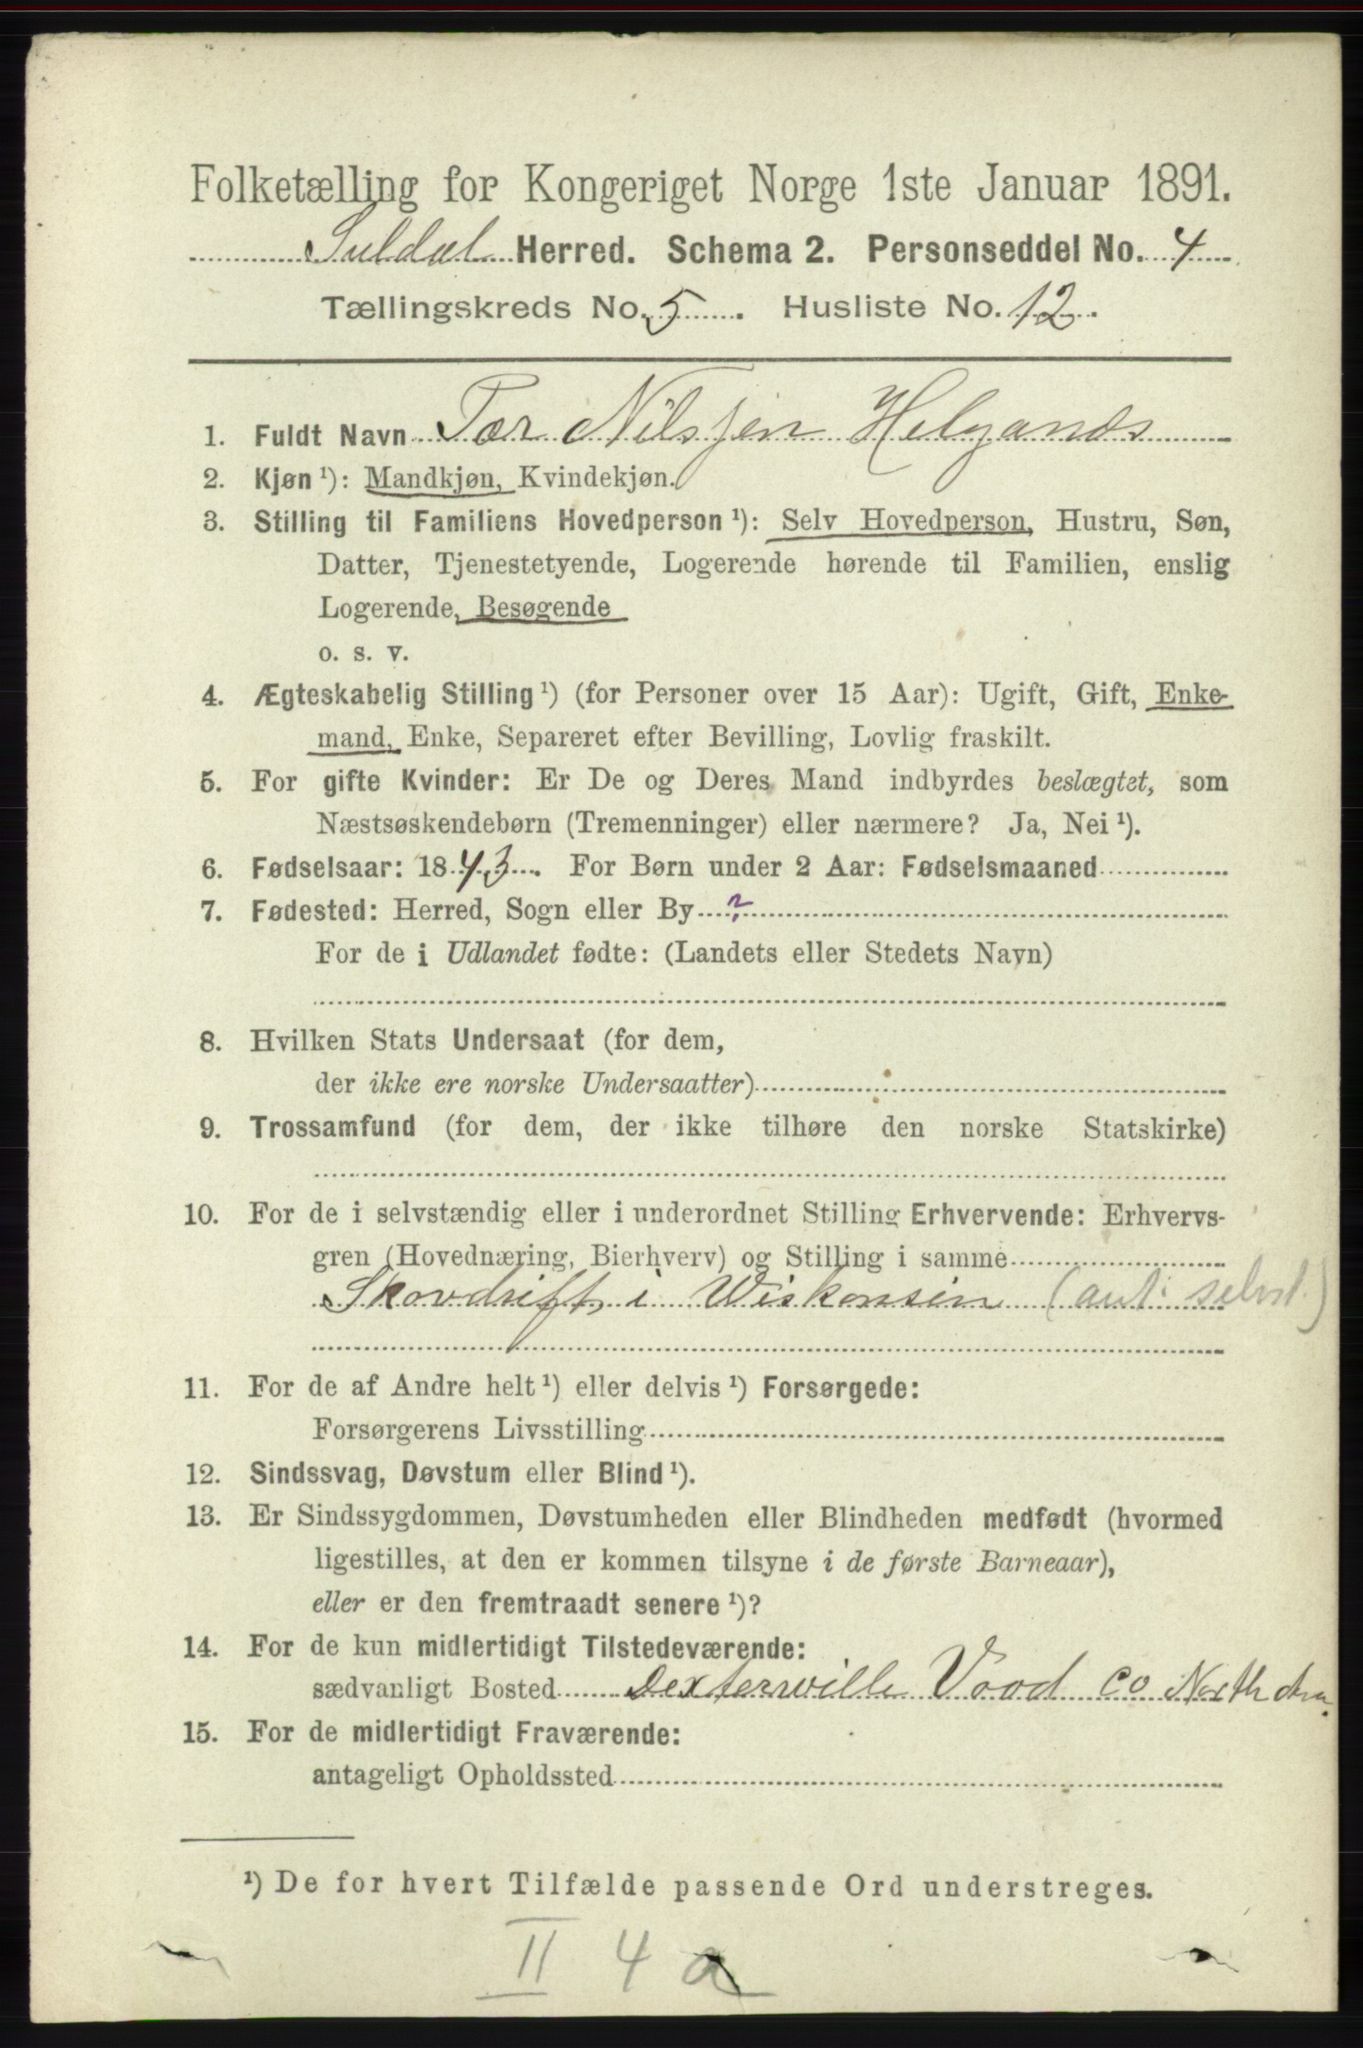 Folketælling for Kongeriget Norge 1ste Januar 1891.
Suldal Herred. Schema 2. Personseddel No. 4
Tællingskreds No. 5. Husliste No. 12.
1. Fuldt Navn Tor Nilsjen Helgands
2. Kjøn ¹): Mandkjøn, Kvindekjøn.
3. Stilling til Familiens Hovedperson ¹): Selv Hovedperson, Hustru, Søn,
Datter, Tjenestetyende, Logerende hørende til Familien, enslig
Logerende, Besøgende
o. s. v.
4. Ægteskabelig Stilling ¹) (for Personer over 15 Aar): Ugift, Gift, Enke-
mand, Enke, Separeret efter Bevilling, Lovlig fraskilt.
5. For gifte Kvinder: Er De og Deres Mand indbyrdes beslægtet, som
Næstsøskendebørn (Tremenninger) eller nærmere? Ja, Nei ¹).
6. Fødselsaar: 1843. For Børn under 2 Aar: Fødselsmaaned
7. Fødested: Herred, Sogn eller By ?
For de i Udlandet fødte: (Landets eller Stedets Navn)
8. Hvilken Stats Undersaat (for dem,
der ikke ere norske Undersaatter)
9. Trossamfund (for dem, der ikke tilhøre den norske Statskirke)
10. For de i selvstændig eller i underordnet Stilling Erhvervende: Erhvervs-
gren (Hovednæring, Bierhverv) og Stilling i samme
Skovdrift i Wiskonsin (ant. selvst.)
11. For de af Andre helt ¹) eller delvis ¹) Forsørgede:
Forsørgerens Livsstilling
12. Sindssvag, Døvstum eller Blind ¹).
13. Er Sindssygdommen, Døvstumheden eller Blindheden medfødt (hvormed
ligestilles, at den er kommen tilsyne i de første Barneaar),
eller er den fremtraadt senere ¹)?
14. For de kun midlertidigt Tilstedeværende:
sædvanligt Bosted Dexterville Vood co North Am.
15. For de midlertidigt Fraværende:
antageligt Opholdssted
¹) De for hvert Tilfælde passende Ord understreges.
II 4 a